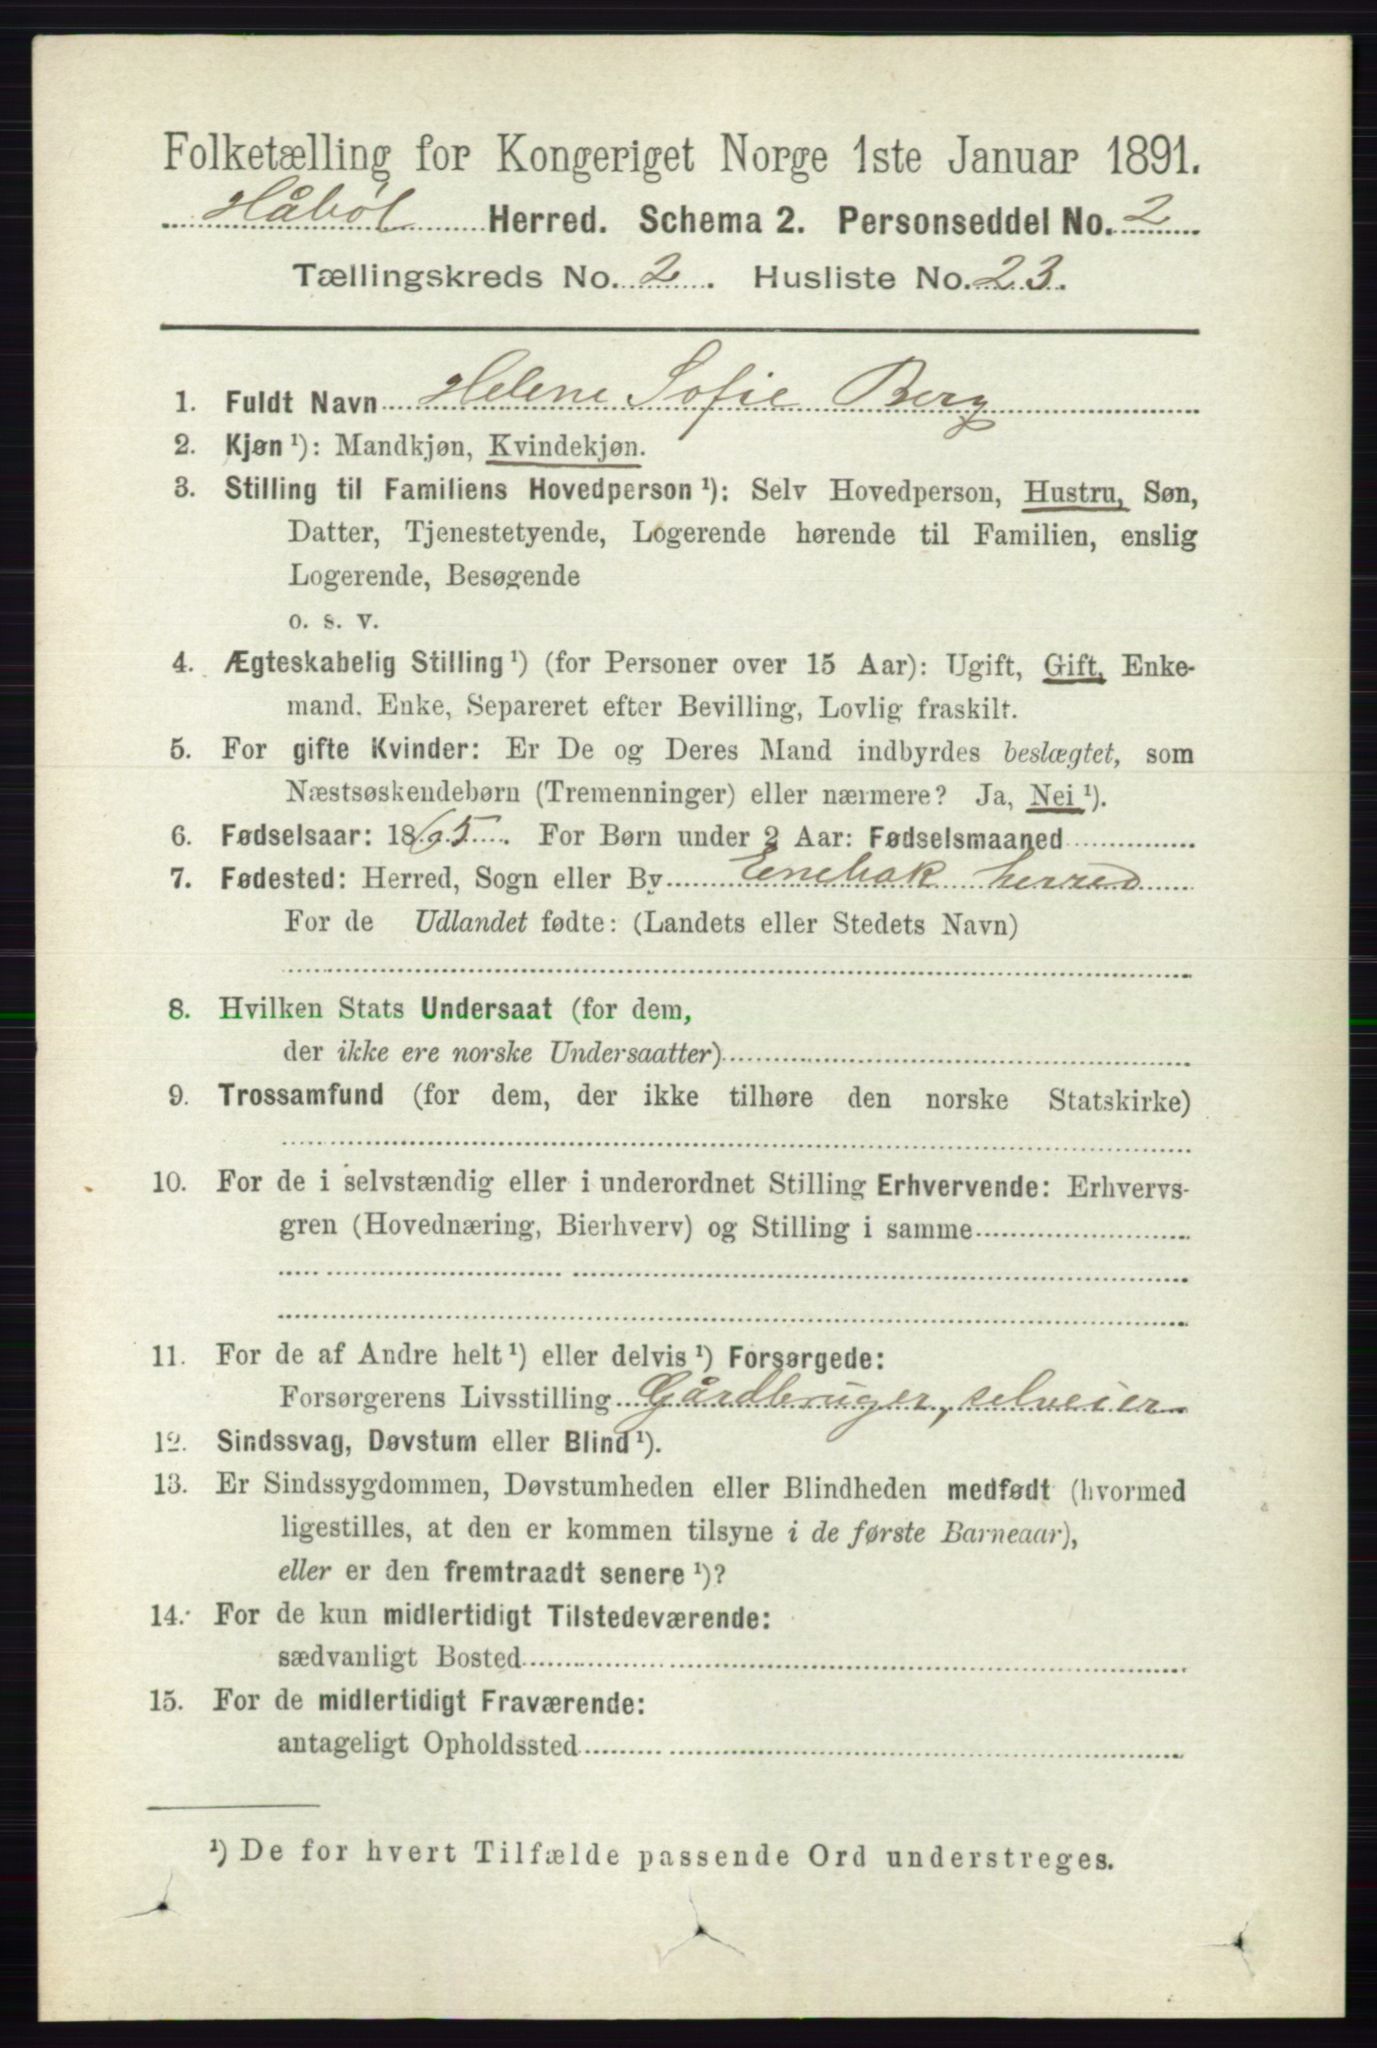 Folketælling for Kongeriget Norge 1ste Januar 1891.
Håbøl Herred. Schema 2. Personseddel No. 2
Tællingskreds No. 2. Husliste No. 23.
1. Fuldt Navn Helene Sofie Berg
2. Kjøn ¹): Mandkjøn, Kvindekjøn.
3. Stilling til Familiens Hovedperson ¹): Selv Hovedperson, Hustru, Søn,
Datter, Tjenestetyende, Logerende hørende til Familien, enslig
Logerende, Besøgende
o. s. v.
4. Ægteskabelig Stilling ¹) (for Personer over 15 Aar): Ugift, Gift, Enke-
mand, Enke, Separeret efter Bevilling, Lovlig fraskilt.
5. For gifte Kvinder: Er De og Deres Mand indbyrdes beslægtet, som
Næstsøskendebørn (Tremenninger) eller nærmere? Ja, Nei ¹).
6. Fødselsaar: 1865. For Børn under 2 Aar: Fødselsmaaned
7. Fødested: Herred, Sogn eller By Enebak herred
For de Udlandet fødte: (Landets eller Stedets Navn)
8. Hvilken Stats Undersaat (for dem,
der ikke ere norske Undersaatter)
9. Trossamfund (for dem, der ikke tilhøre den norske Statskirke)
10. For de i selvstændig eller i underordnet Stilling Erhvervende: Erhvervs-
gren (Hovednæring, Bierhverv) og Stilling i samme
11. For de af Andre helt ¹) eller delvis ¹) Forsørgede:
Forsørgerens Livsstilling Gårdbruger, selveier
12. Sindssvag, Døvstum eller Blind ¹).
13. Er Sindssygdommen, Døvstumheden eller Blindheden medfødt (hvormed
ligestilles, at den er kommen tilsyne i de første Barneaar),
eller er den fremtraadt senere ¹)?
14. For de kun midlertidigt Tilstedeværende:
sædvanligt Bosted
15. For de midlertidigt Fraværende:
antageligt Opholdssted
¹) De for hvert Tilfælde passende Ord understreges.